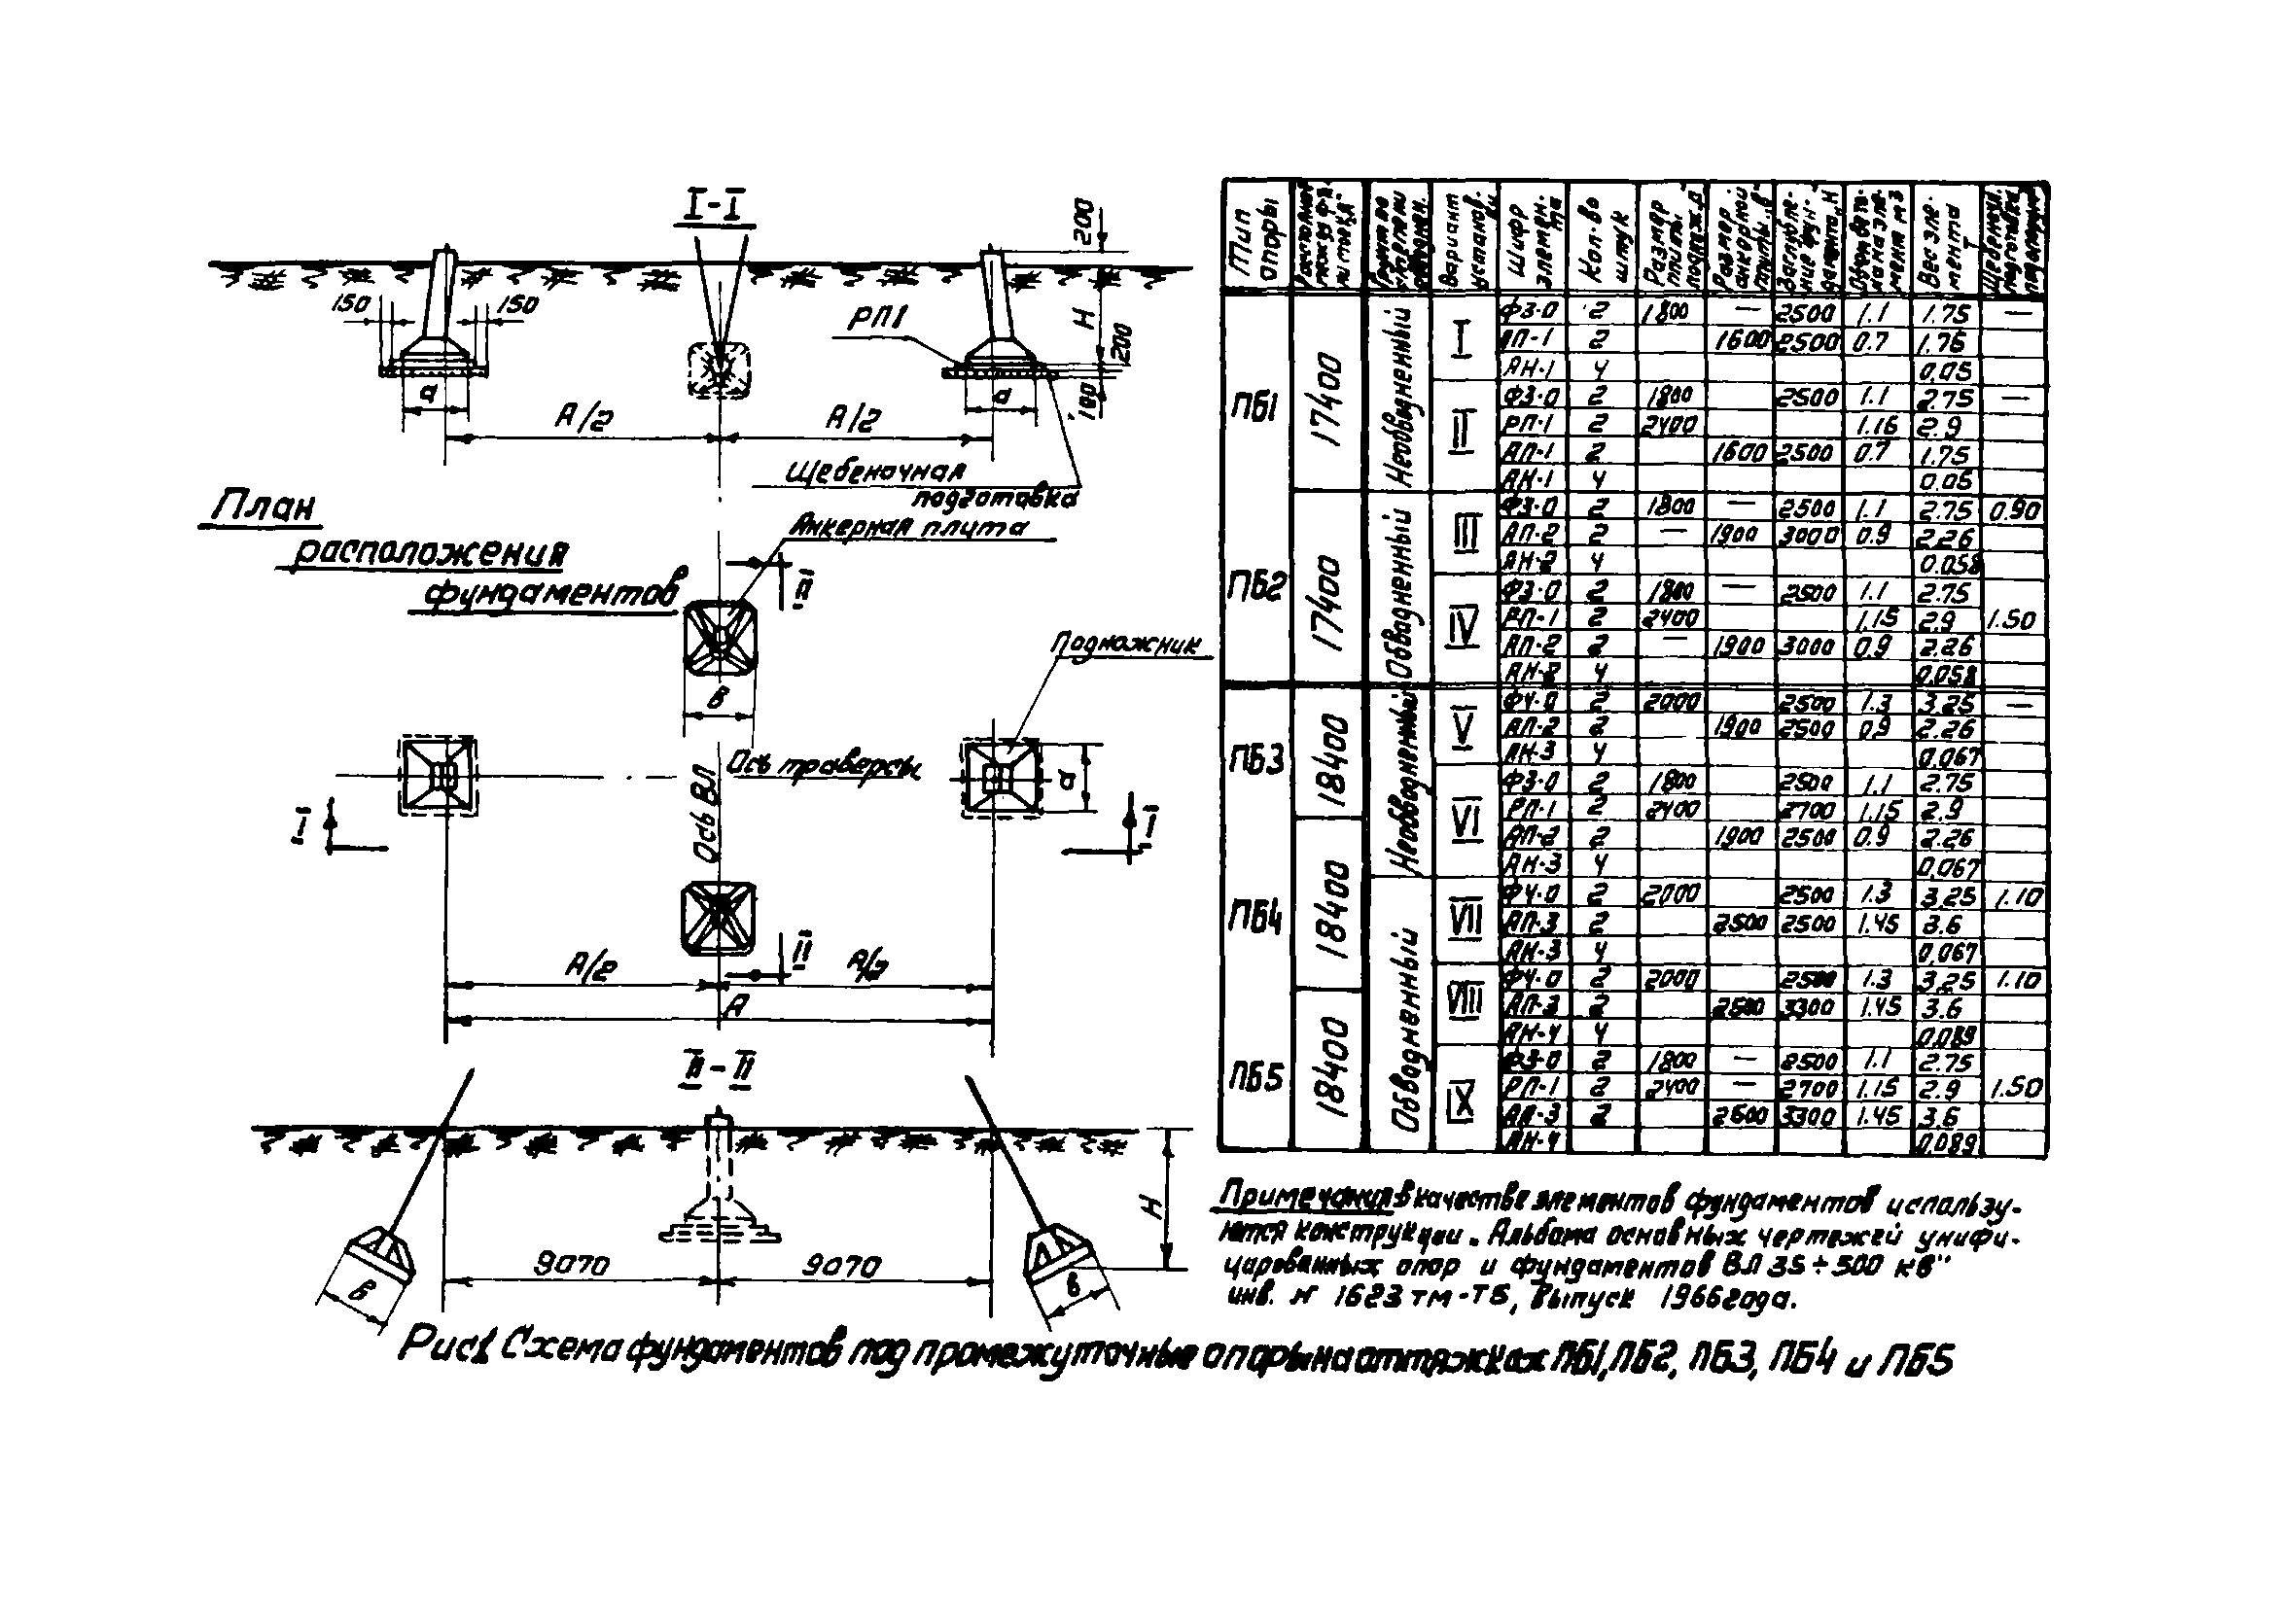 I-I
200
150
150
РП1
H
200
100
а
а
А/2
А/2
Щебеночная
подготовка
Анкерная плита
План
расположения
фундаментов
II
В
Подножник
Ось траверсы
Ось ВЛ
а
I
I
II
А/2
А/2
А
II-II
H
9070
9070
В
в
Тип опоры
Вариант
Шифр элемен-та
Кол-во штук
Размер плиты
Размер анкорной плиты „в"
Вес эле-мента т
ПБ1 17400 Необводненный
I Ф3-0 2 1800 — 2500 1.1 1.75 —
АП-1 2 1600 2500 0.7 1.76
АН-1 4 0,05
II Ф3-0 2 1800 2500 1.1 2.75 —
РП-1 2 2400 1.16 2.9
АП-1 2 1600 2500 0.7 1.75
АН-1 4 0.05
ПБ2 17400 Обводненный
III Ф3-0 2 1800 — 2500 1.1 2.75 0.90
АП-2 2 — 1900 3000 0.9 2.26
АН-2 4 0.058
IV Ф3-0 2 1800 — 2500 1.1 2.75
РП-1 2 2400 1.15 2.9 1.50
АП-2 2 — 1900 3000 0.9 2.26
АН-2 4 0,058
ПБ3 18400 Необводненный
V Ф4-0 2 2000 2500 1.3 3.25 —
АП-2 2 1900 2500 0,9 2.26
АН-3 4 0,067
VI Ф3-0 2 1800 2500 1.1 2.75
РП-1 2 2400 2700 1.15 2.9
АП-2 2 1900 2500 0.9 2.26
АН-3 4 0,067
ПБ4 18400 Обводненный
VII Ф4-0 2 2000 2500 1.3 3,25 1.10
АП-3 2 2500 2500 1.45 3.6
АН-3 4 0,067
VIII Ф4-0 2 2000 2500 1.3 3,25 1.10
АП-3 2 2500 3300 1.45 3.6
АН-4 4 0,089
ПБ5 18400
IX Ф3-0 2 1800 — 2500 1.1 2.75
РП-1 2 2400 — 2700 1.15 2.9 1.50
АП-3 2 2600 3300 1.45 3.6
АН-4 0,089
Примечания: в качестве элементов фундаментов использу-
ются конструкции „Альбома основных чертежей унифи-
цированных опор и фундаментов ВЛ 35÷500 кв"
инв. № 1623 тм-Т5, Выпуск 1966 года.
Рис1 Схема фундаментов под промежуточные опоры на оттяжках ПБ1, ПБ2, ПБ3, ПБ4 и ПБ5